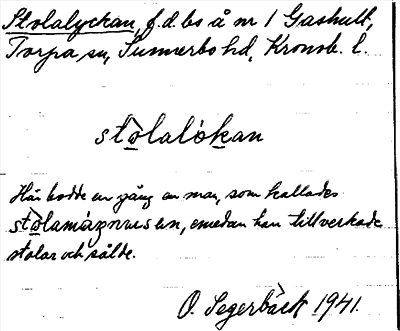 Stolalyckan, f.d. bs å nr 1 Gashult,
Torpa sn, Sunnerbo hd, Kronob. l.
stolalókan
Här bodde en gång en man, som kallades
stolamágnusen, emedan han tillverkade
stolar och sålde.
O. Segerbäck 1941.